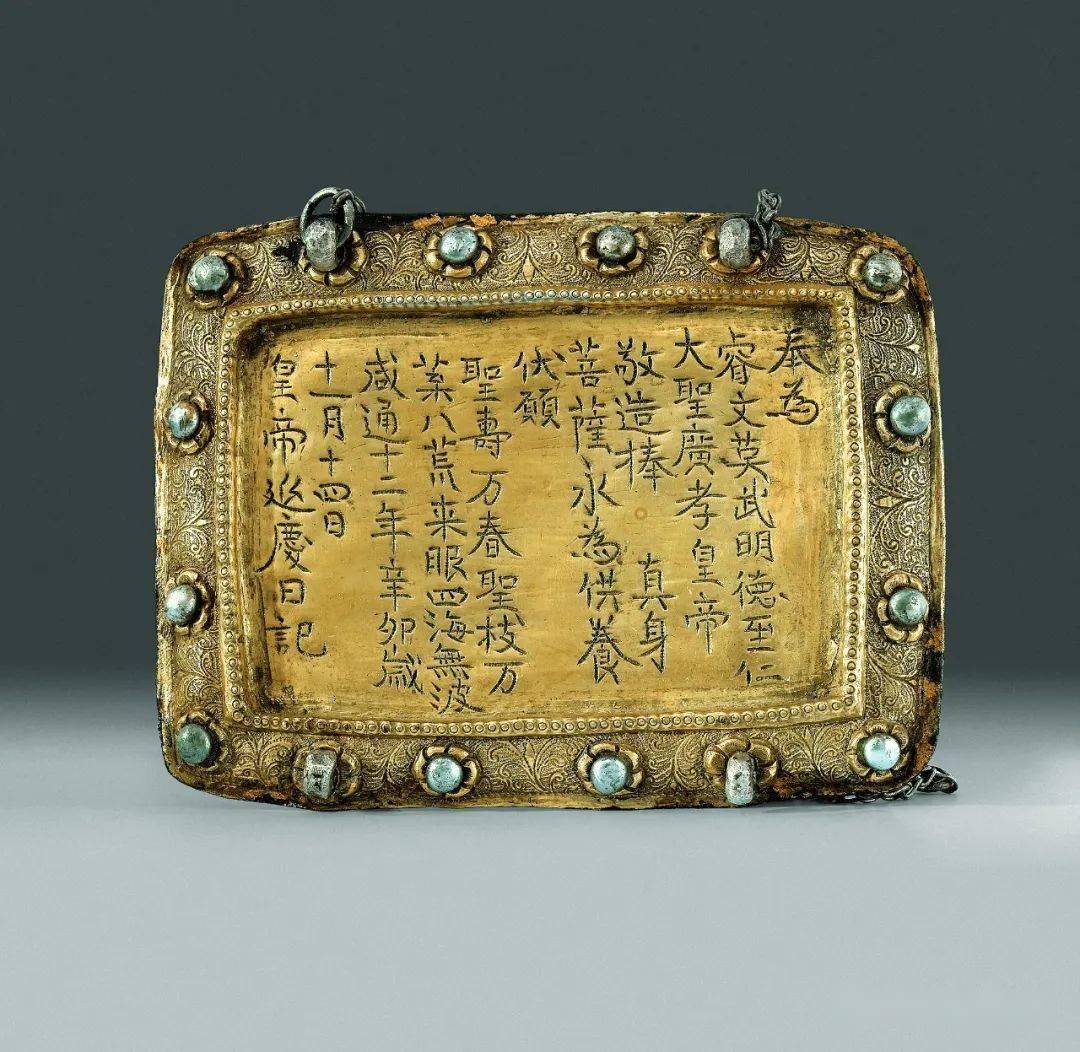 奉為
睿文英武明德至仁
大聖廣孝皇帝
敬造捧 真身
菩薩永為供養
伏願
聖壽万春聖枝万
葉八荒来服四海無波
咸通十二年辛卯歲
十一月十四日
皇帝延慶日記